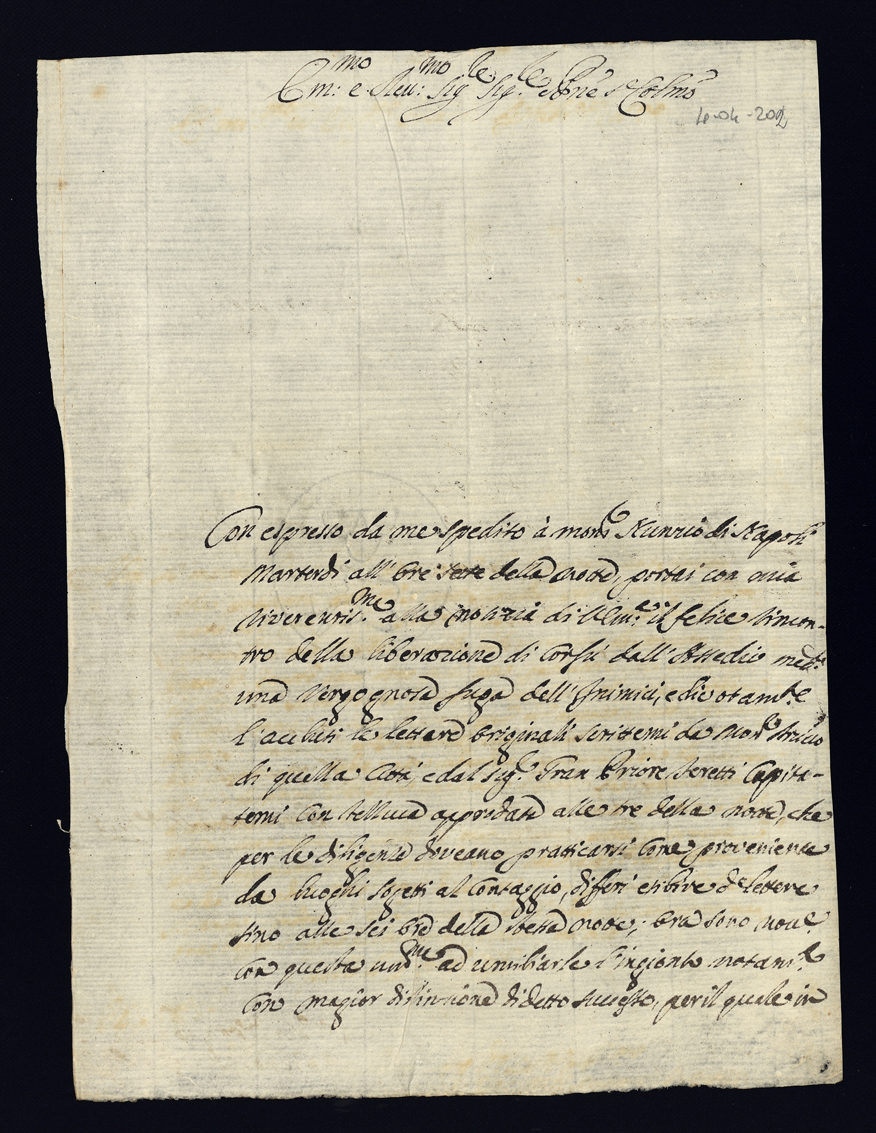 Em:mo e Reu:mo Sig.re Sig.re e Pñe Colmo
4-04-202
Con espresso da me spedito à mons.e Nunzio di Napoli
Martedi all'ore sette della notte, portai con mia
riverentis.ma alla notizia di V. Em: il felice rincon-
tro della liberazione di Corfù dall'Assedio med.te
una vergognosa fuga dell'Inimici, e
l'acclusi le lettere originali scrittemi da Mon.
di quella Città, e dal Sig.r Gran Priore Feretti Capita-
temi con Felluca approdata alle tre della notte, che
per le diligenze doveano pratticarsi come proveniente
da luoghi sogetti al Contaggio, differì esibire d.e lettere
sino alle sei ore della stessa notte; Ora sono nou.e
con questa um.ma ad umiliarle l'ingionto
con magior distinzione di detto successo, per il quale in